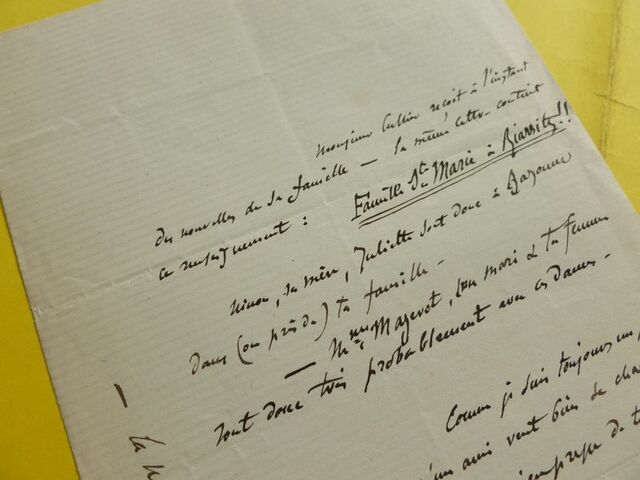 Monsieur Cullier reçoit à l'instant
des nouvelles de sa famille — la même lettre contient
ce renseignement : Famille Ste Marie à Biarritz!!
Ninon, sa mère, Juliette sont donc à Bayonne
dans (ou près de) ta famille —
— Mmes Mazeret, son mari & ta femme
sont donc très probablement avec ces Dames —
Comme je suis toujours un,
un ami veut bien se cha
de t
— la